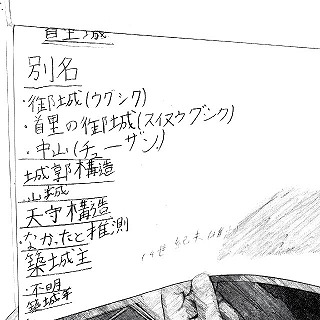 首里城
別名
・御城(ウグシク)
・首里の御城(スイヌウグシク)
・中山(チューザン)
城郭構造
山城
天守構造
なかったと推測
築城主
・不明
築城年